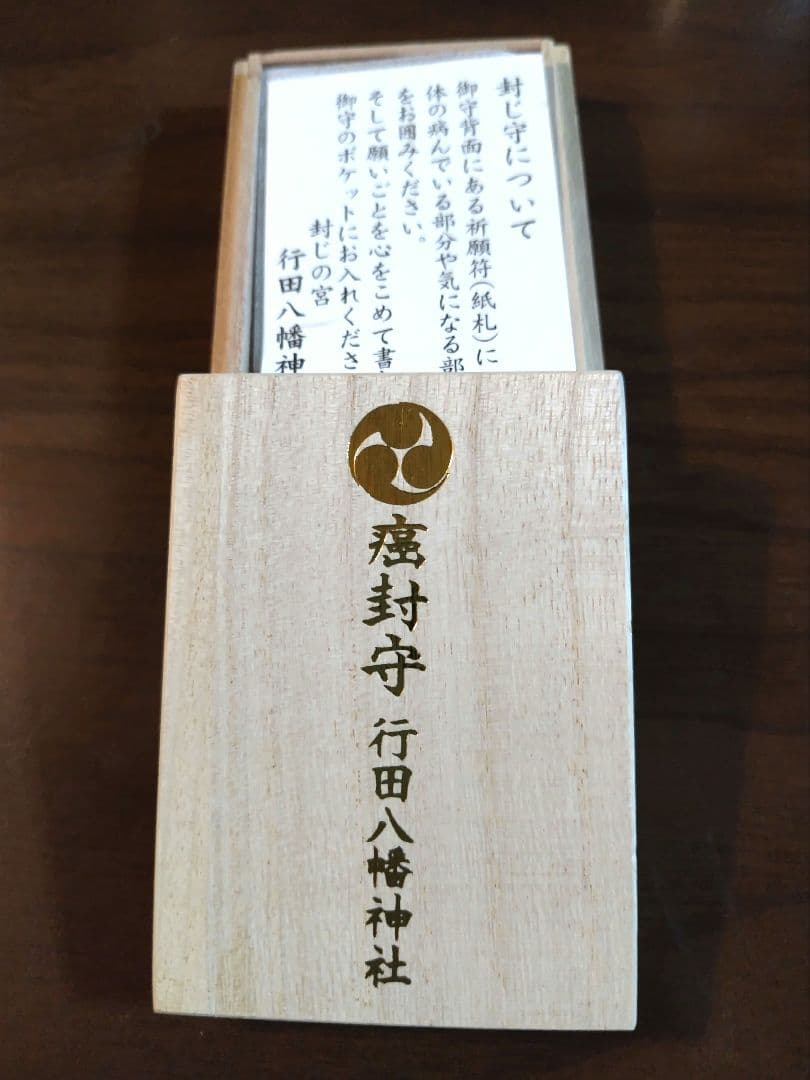 封じ守について
御守背面にある祈願符(紙札)に
体の病んでいる部分や気になる部
をお囲みください。
そして願いごとを心をこめて書
御守のポケットにお入れくださ
封じの宮
行田八幡神
癌封守 行田八幡神社